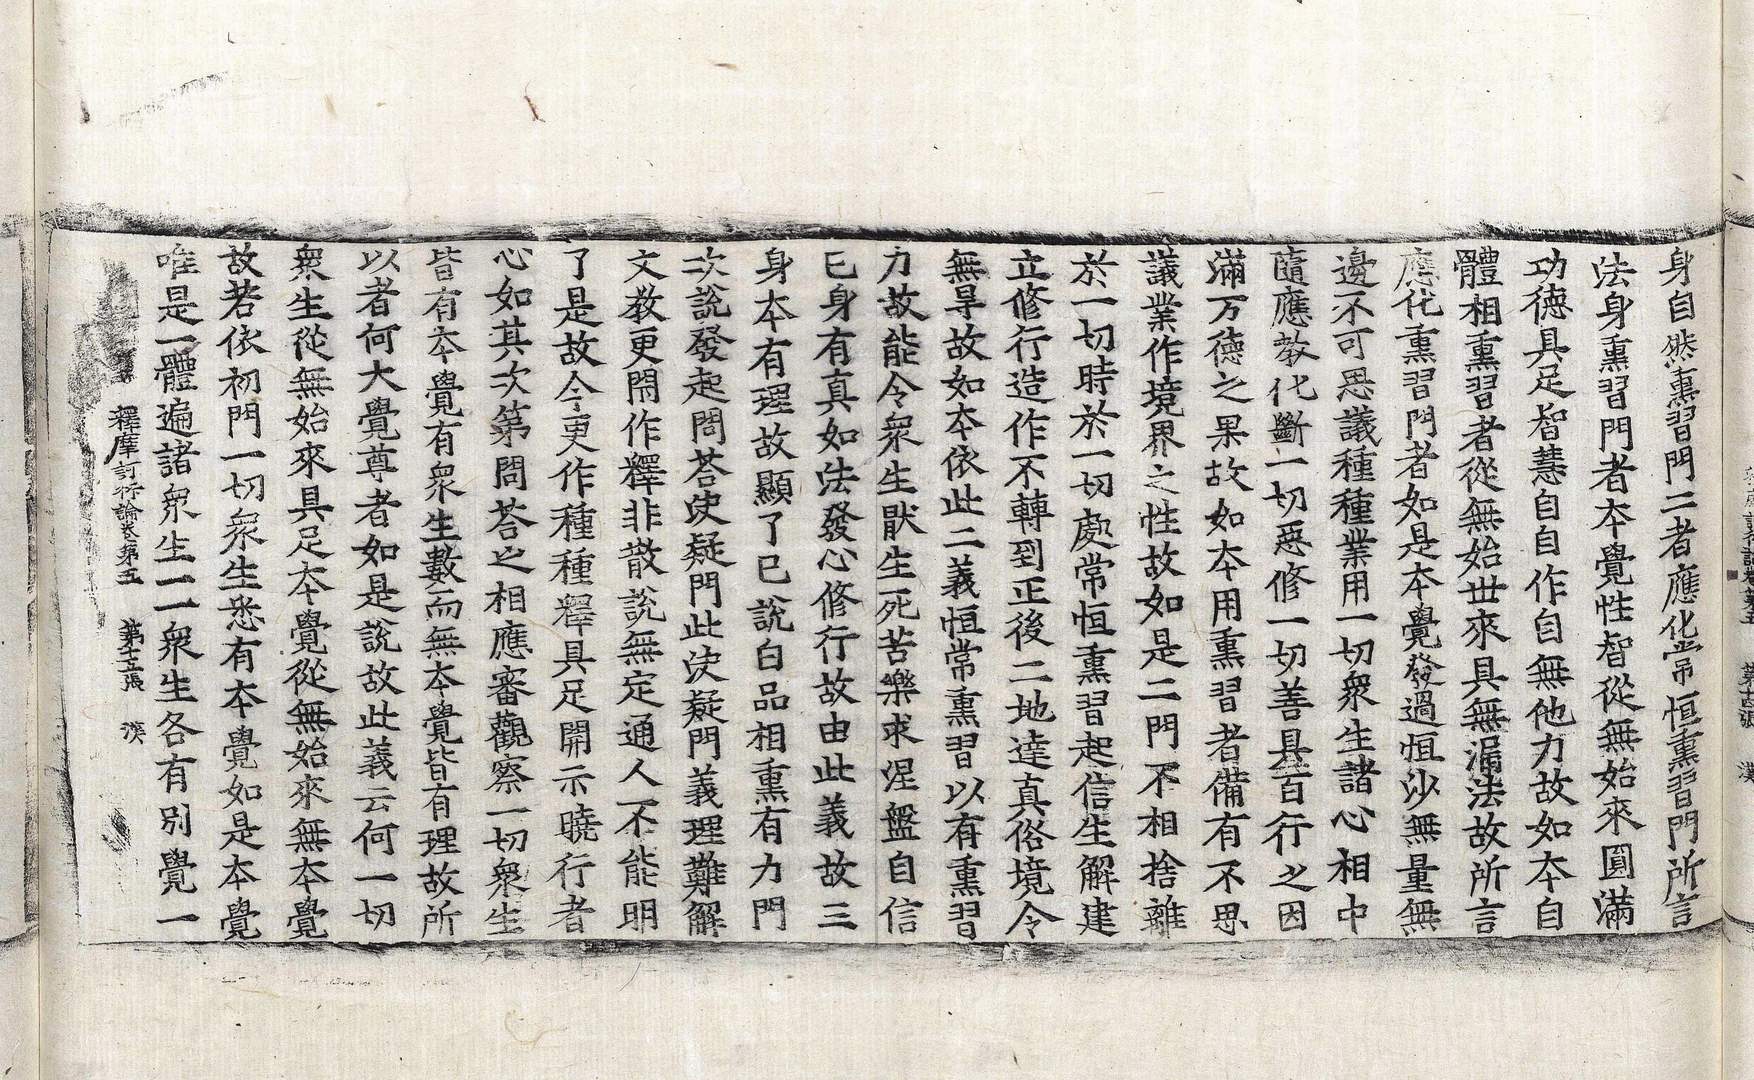 身自然熏習門二者應化常恒熏習門所言
法身熏習門者本覺性智從無始來圓滿
功德具足智慧自自作自無他力故如本自
體相熏習者從無始世來具無漏法故所言
應化熏習門者如是本覺發過恒沙無量無
邊不可思議種種業用一切衆生諸心相中
隨應教化斷一切惡修一切善具百行之因
滿万德之果故如本用熏習者備有不思
議業作境界之性故如是二門不相捨離
於一切時於一切處常恒熏習起信生解建
立修行造作不轉到正後二地達真俗境令
無㝵故如本依此二義恒常熏習以有熏習
力故能令衆生猒生死苦樂求涅盤自信
已身有真如法發心修行故由此義故三
身本有理故顯了已說自品相熏有力門
次說發起問荅決疑門此決疑門義理難解
文教更閞作釋非散說無定通人不能明
了是故今更作種種釋具足開示曉行者
心如其次第問荅之相應審觀察一切衆生
皆有本覺有衆生數而無本覺皆有理故所
以者何大覺尊者如是說故此義云何一切
衆生從無始來具足本覺從無始來無本覺
故若依初門一切衆生悉有本覺如是本覺
唯是一體遍諸衆生一一衆生各有別覺一
釋摩訶衍論卷第五 第十五張 漢